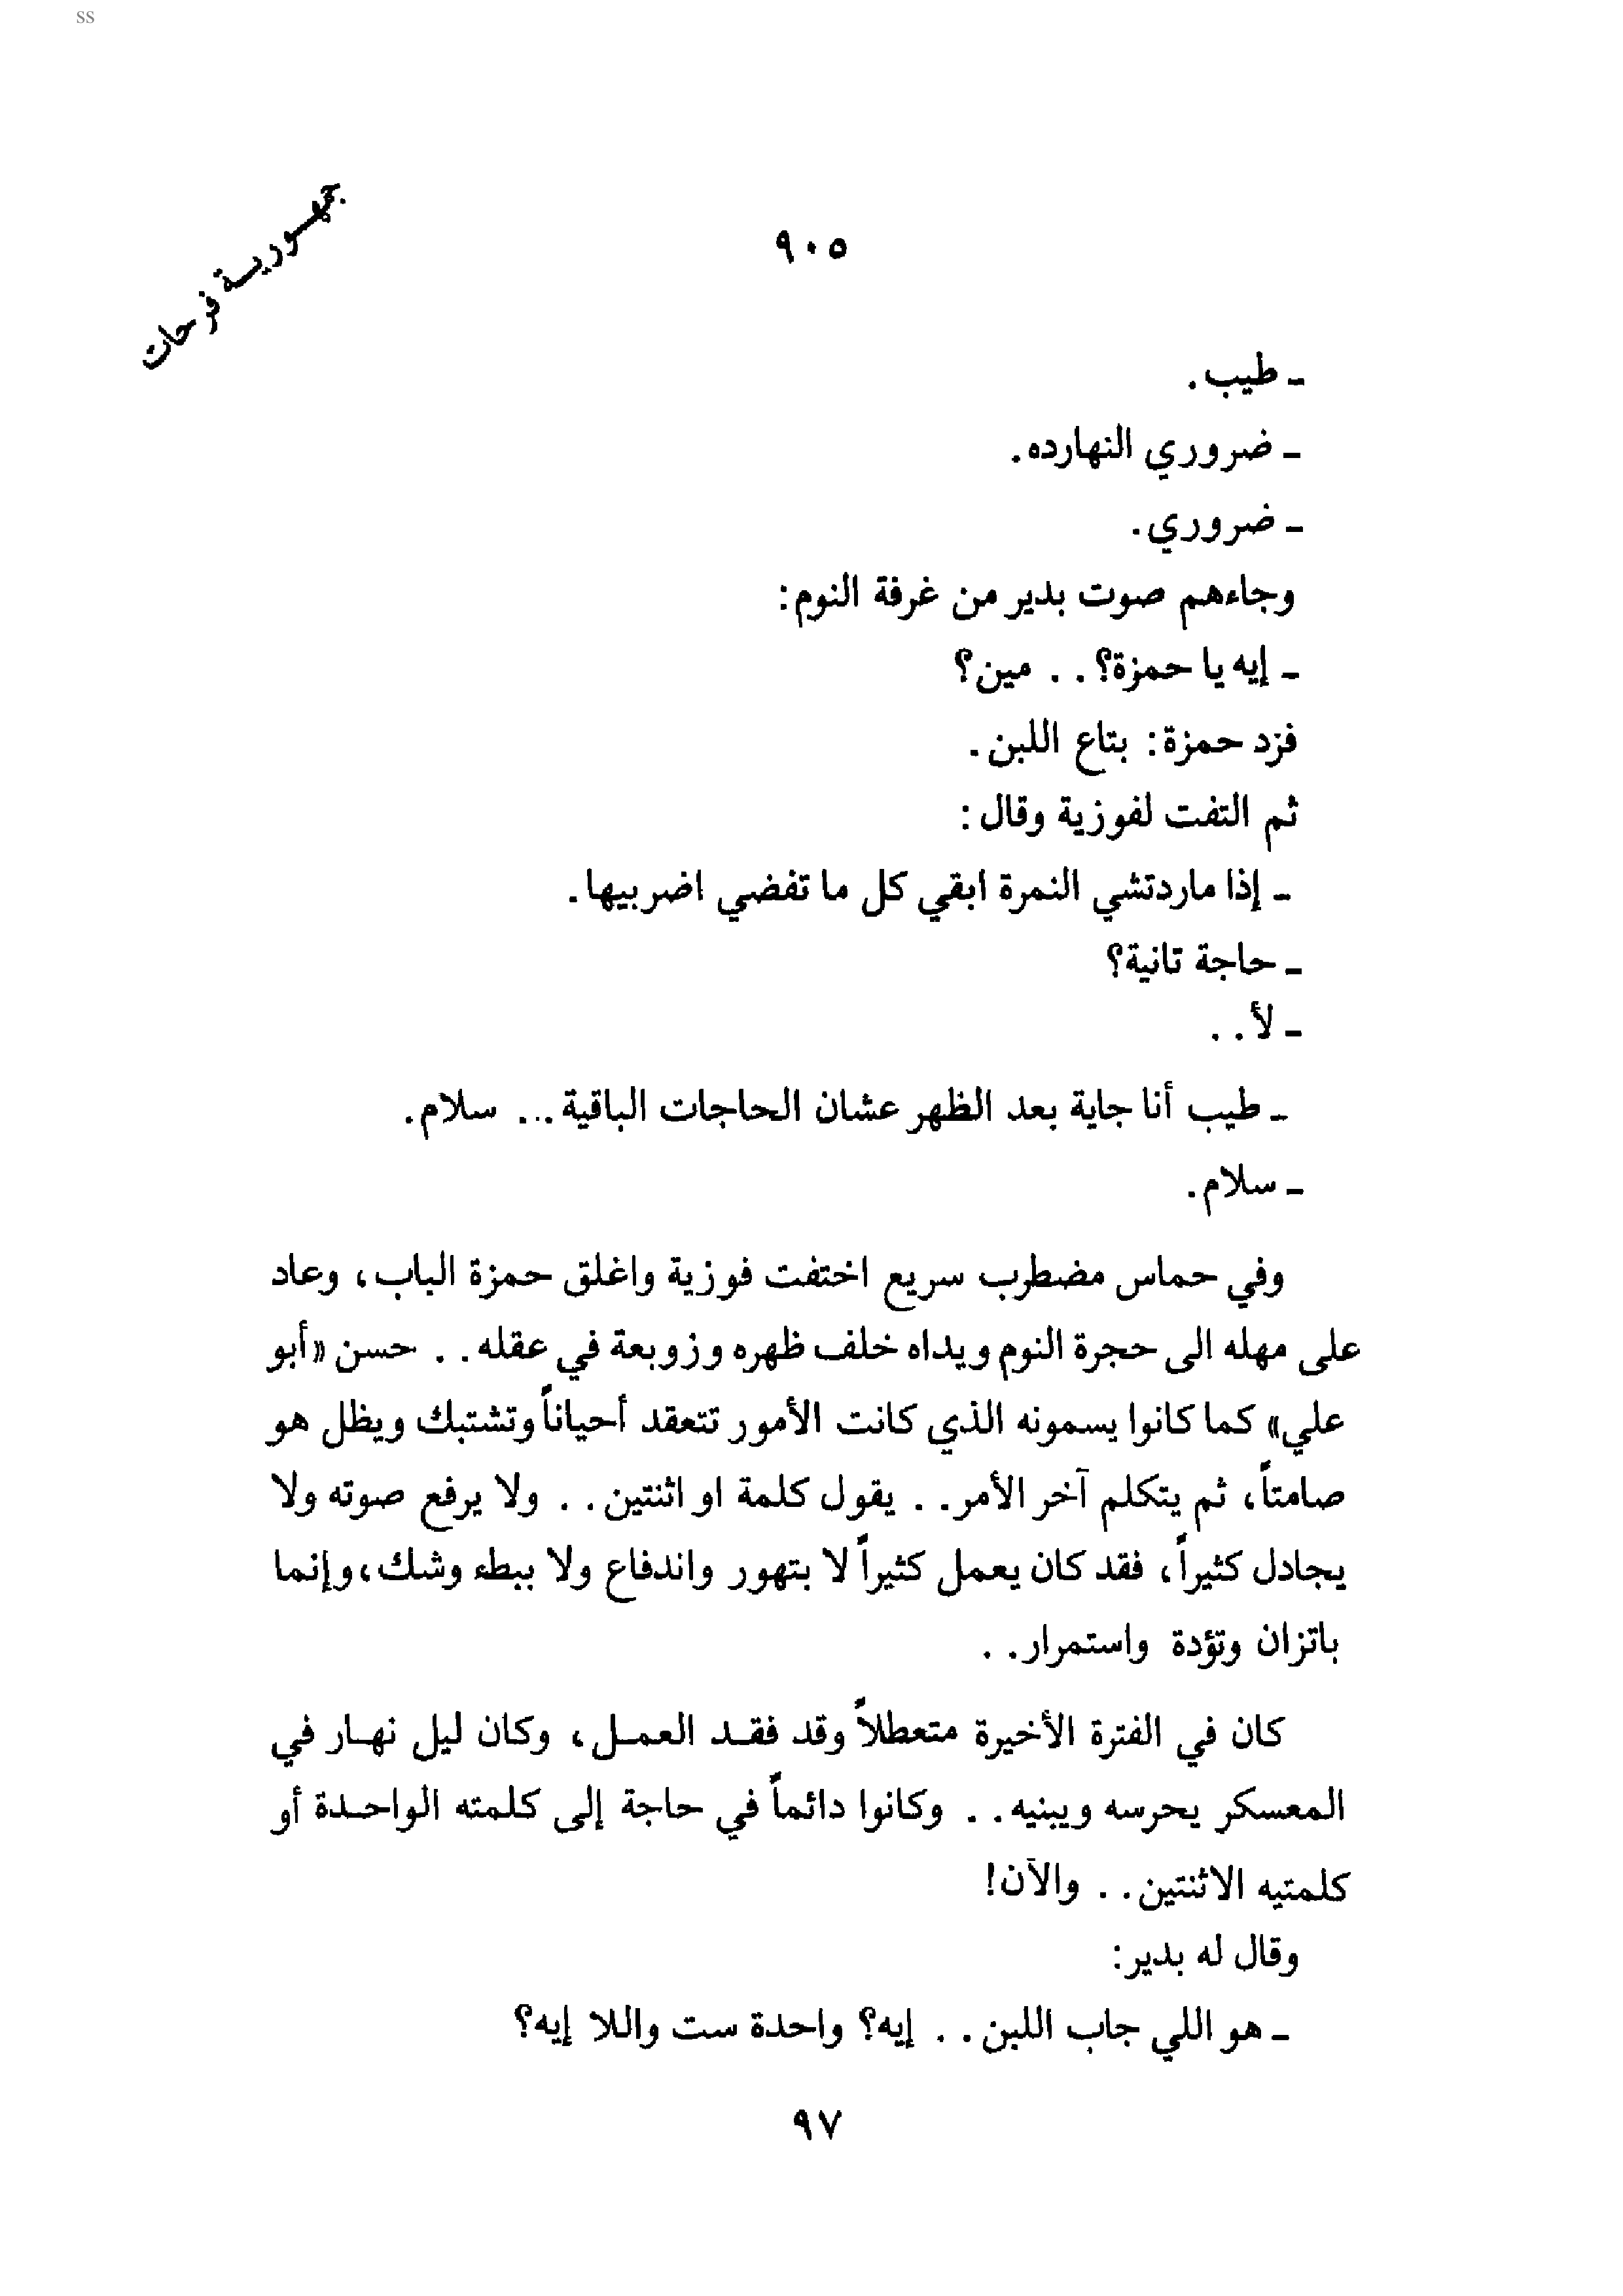 ss
جمهورية فرحات
٩٠٥
ـ طيب.
ـ ضروري النهارده.
ـ ضروري.
وجاءهم صوت بدير من غرفة النوم:
ـ إيه يا حمزة؟.. مين؟
فرد حمزة: بتاع اللبن.
ثم التفت لفوزية وقال:
ـ إذا ماردتشي النمرة ابقي كل ما تفضي اضربيها.
ـ حاجة تانية؟
ـ لأ..
ـ طيب أنا جاية بعد الظهر عشان الحاجات الباقية... سلام.
ـ سلام.
وفي حماس مضطرب سريع اختفت فوزية واغلق حمزة الباب، وعاد
على مهله الى حجرة النوم ويداه خلف ظهره وزوبعة في عقله.. حسن «أبو
علي» كما كانوا يسمونه الذي كانت الأمور تتعقد أحياناً وتشتبك ويظل هو
صامتاً، ثم يتكلم آخر الأمر.. يقول كلمة او اثنتين.. ولا يرفع صوته ولا
يجادل كثيراً، فقد كان يعمل كثيراً لا بتهور واندفاع ولا ببطء وشك، وإنما
باتزان وتؤدة واستمرار..
كان في الفترة الأخيرة متعطلاً وقد فقد العمل، وكان ليل نهار في
المعسكر يحرسه ويبنيه.. وكانوا دائماً في حاجة إلى كلمته الواحدة أو
كلمتيه الاثنتين.. والآن!
وقال له بدير:
ـ هو اللي جاب اللبن.. إيه؟ واحدة ست واللا إيه؟
٩٧